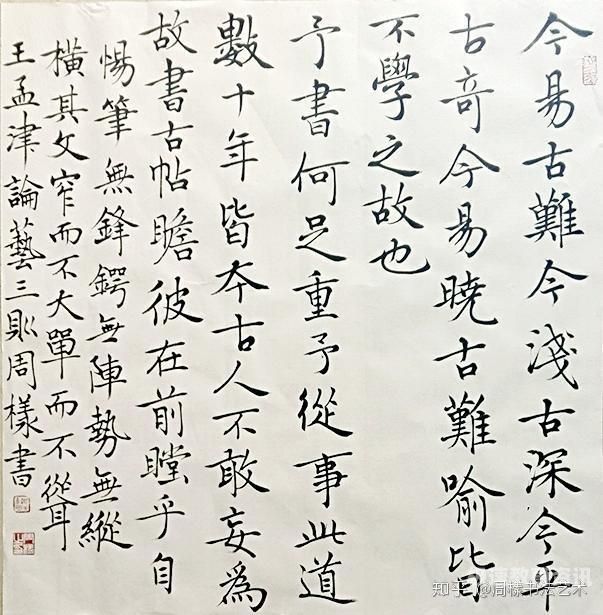 今易古難今淺古深今平
古奇今易曉古難喻皆
不學之故也
予書何足重予從事此道
數十年皆本古人不敢妄爲
故書古帖瞻彼在前瞠乎自
惕筆無鋒鍔無陣勢無縱
橫其文窄而不大單而不聳
王孟津論藝三則周樣書
知乎 @周樣书法艺术